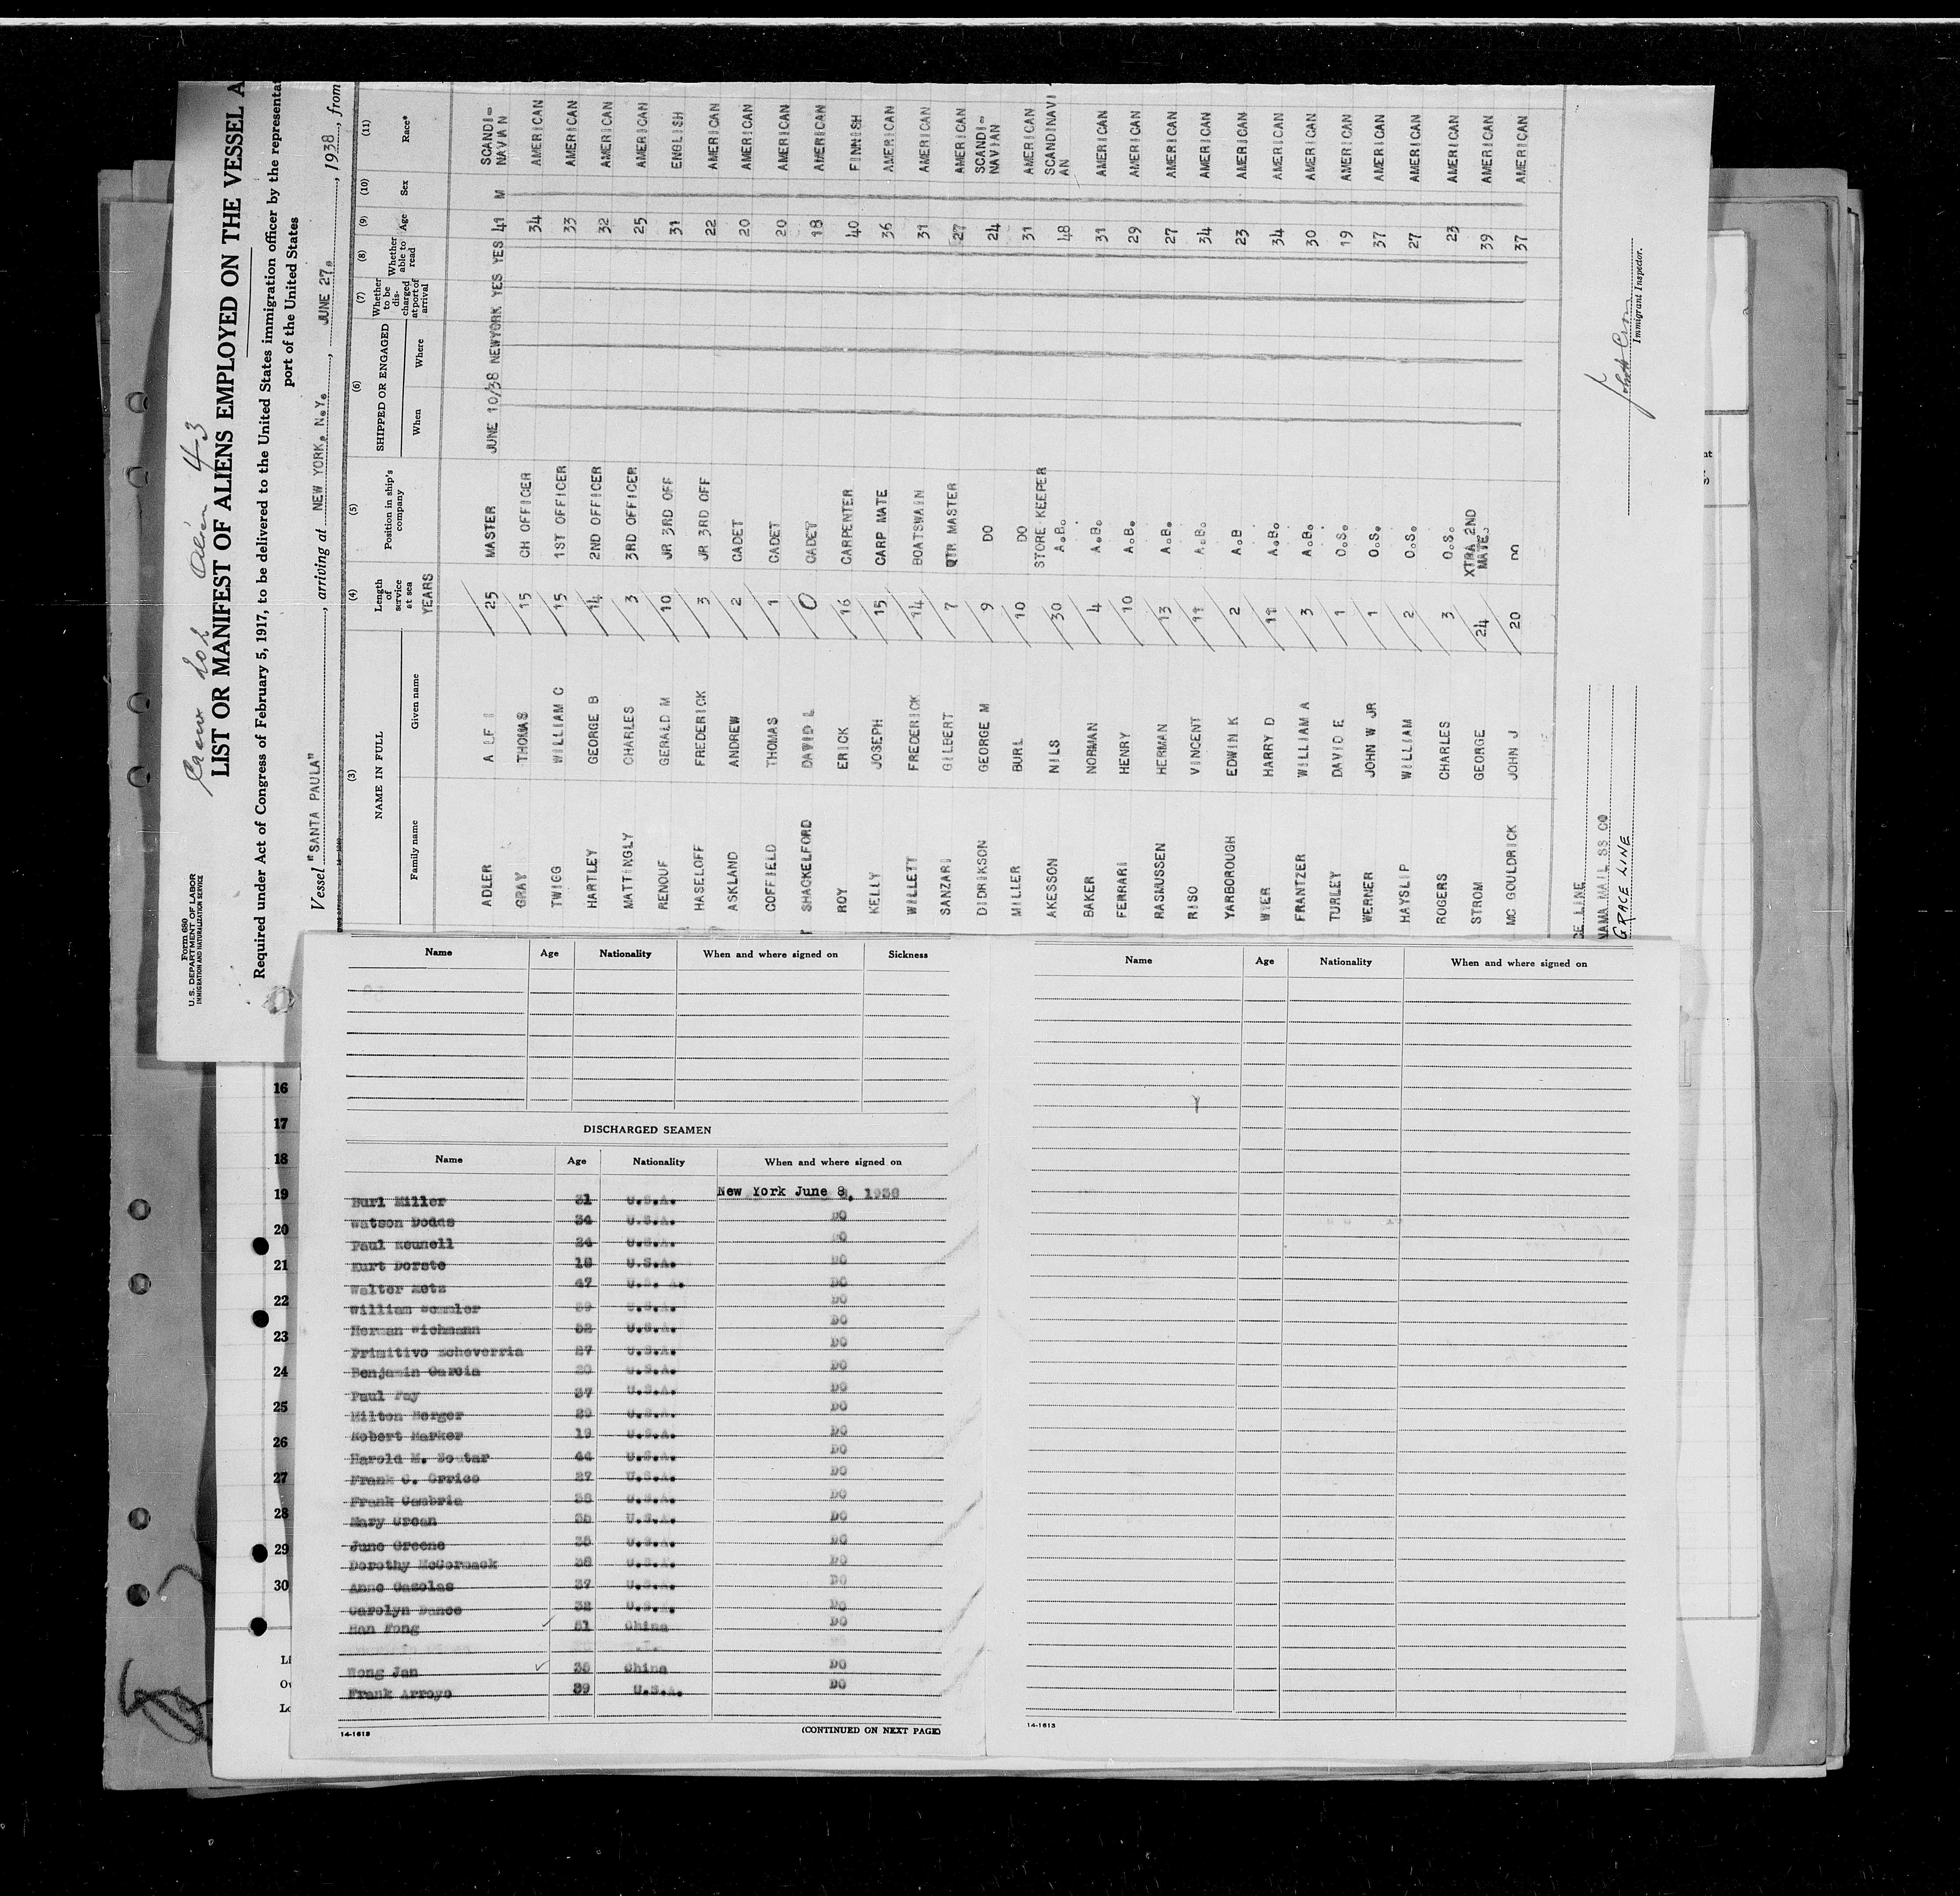 Crew List Alien 43
Form 680
U. S. DEPARTMENT OF LABOR
IMMIGRATION AND NATURALIZATION SERVICE
LIST OR MANIFEST OF ALIENS EMPLOYED ON THE VESSEL A
Required under Act of Congress of February 5, 1917, to be delivered to the United States immigration officer by the representat
port of the United States
Vessel "SANTA PAULA", arriving at NEW YORK. N.Y., JUNE 27., 1938, from
(3) (4) (5) (6) (7) (8) (9) (10) (11)
NAME IN FULL Length of service at sea Position in ship's company SHIPPED OR ENGAGED Whether to be discharged at port of arrival Whether able to read Age Sex Race*
Family name Given name YEARS When Where
ADLER ALF I 25 MASTER JUNE 10/38 NEWYORK YES YES 41 M SCANDI-NAVIAN
GRAY THOMAS 15 CH OFFICER 34 AMERICAN
TWIGG WILLIAM C 15 1ST OFFICER 33 AMERICAN
HARTLEY GEORGE B 14 2ND OFFICER 32 AMERICAN
MATTINGLY CHARLES 3 3RD OFFICER 25 AMERICAN
RENOUF GERALD M 10 JR 3RD OFF 31 ENGLISH
HASELOFF FREDERICK 3 JR 3RD OFF 22 AMERICAN
ASKLAND ANDREW 2 CADET 20 AMERICAN
COFFIELD THOMAS 1 CADET 20 AMERICAN
SHACKELFORD DAVID L 0 CADET 18 AMERICAN
ROY ERICK 16 CARPENTER 40 FINNISH
KELLY JOSEPH 15 CARP MATE 36 AMERICAN
WILLETT FREDERICK 14 BOATSWAIN 31 AMERICAN
SANZARI GILBERT 7 QTR MASTER 27 AMERICAN
DIDRIKSON GEORGE M 9 DO 24 SCANDI-NAVIAN
MILLER BURL 10 DO 31 AMERICAN
AKESSON NILS 30 STORE KEEPER A.B. 48 SCANDINAVIAN
BAKER NORMAN 4 A.B. 31 AMERICAN
FERRARI HENRY 10 A.B. 29 AMERICAN
RASMUSSEN HERMAN 13 A.B. 27 AMERICAN
RISO VINCENT 11 A.B. 34 AMERICAN
YARBOROUGH EDWIN K 2 A.B 23 AMERICAN
WIER HARRY D 11 A.B. 34 AMERICAN
FRANTZER WILLIAM A 3 A.B. 30 AMERICAN
TURLEY DAVID E 1 O.S. 19 AMERICAN
WERNER JOHN W JR 1 O.S. 37 AMERICAN
HAYSLIP WILLIAM 2 O.S. 27 AMERICAN
ROGERS CHARLES 3 O.S. 23 AMERICAN
STROM GEORGE 24 XTRA 2ND MATE. 39 AMERICAN
MC GOULDRICK JOHN J 20 DO 37 AMERICAN
CE LINE
NAMA MAIL SS CO
GRACE LINE
Immigrant Inspector.
Name Age Nationality When and where signed on Sickness
DISCHARGED SEAMEN
Name Age Nationality When and where signed on
Burl Miller 31 U.S.A. New York June 8, 1938
Watson Dodds 34 U.S.A. DO
Paul Reunell 24 U.S.A. DO
Kurt Dorste 18 U.S.A. DO
Walter Metz 47 U.S. A. DO
William 39 U.S.A. DO
Herman Wichmann 52 U.S.A. DO
Primitivo Echeverria 27 U.S.A. DO
Benjamin Garcia 20 U.S.A. DO
Paul Fay 37 U.S.A. DO
Milton Berger 29 U.S.A. DO
Robert Marker 19 U.S.A. DO
Harold M. Soutar 44 U.S.A. DO
Frank C. Orrico 27 U.S.A. DO
Frank Cambria 38 U.S.A. DO
Mary Green 35 U.S.A. DO
June Greene 35 U.S.A. DO
Dorothy McCormack 38 U.S.A. DO
Anne Casolas 37 U.S.A. DO
Carolyn Dance 32 U.S.A. DO
Han Fong 51 China DO
Wong Jan 35 China DO
Frank Arroyo 39 U.S.A. DO
14-1613
(CONTINUED ON NEXT PAGE)
Name Age Nationality When and where signed on
14-1613
16
17
18
19
20
21
22
23
24
25
26
27
28
29
30
Li
Ow
Lo